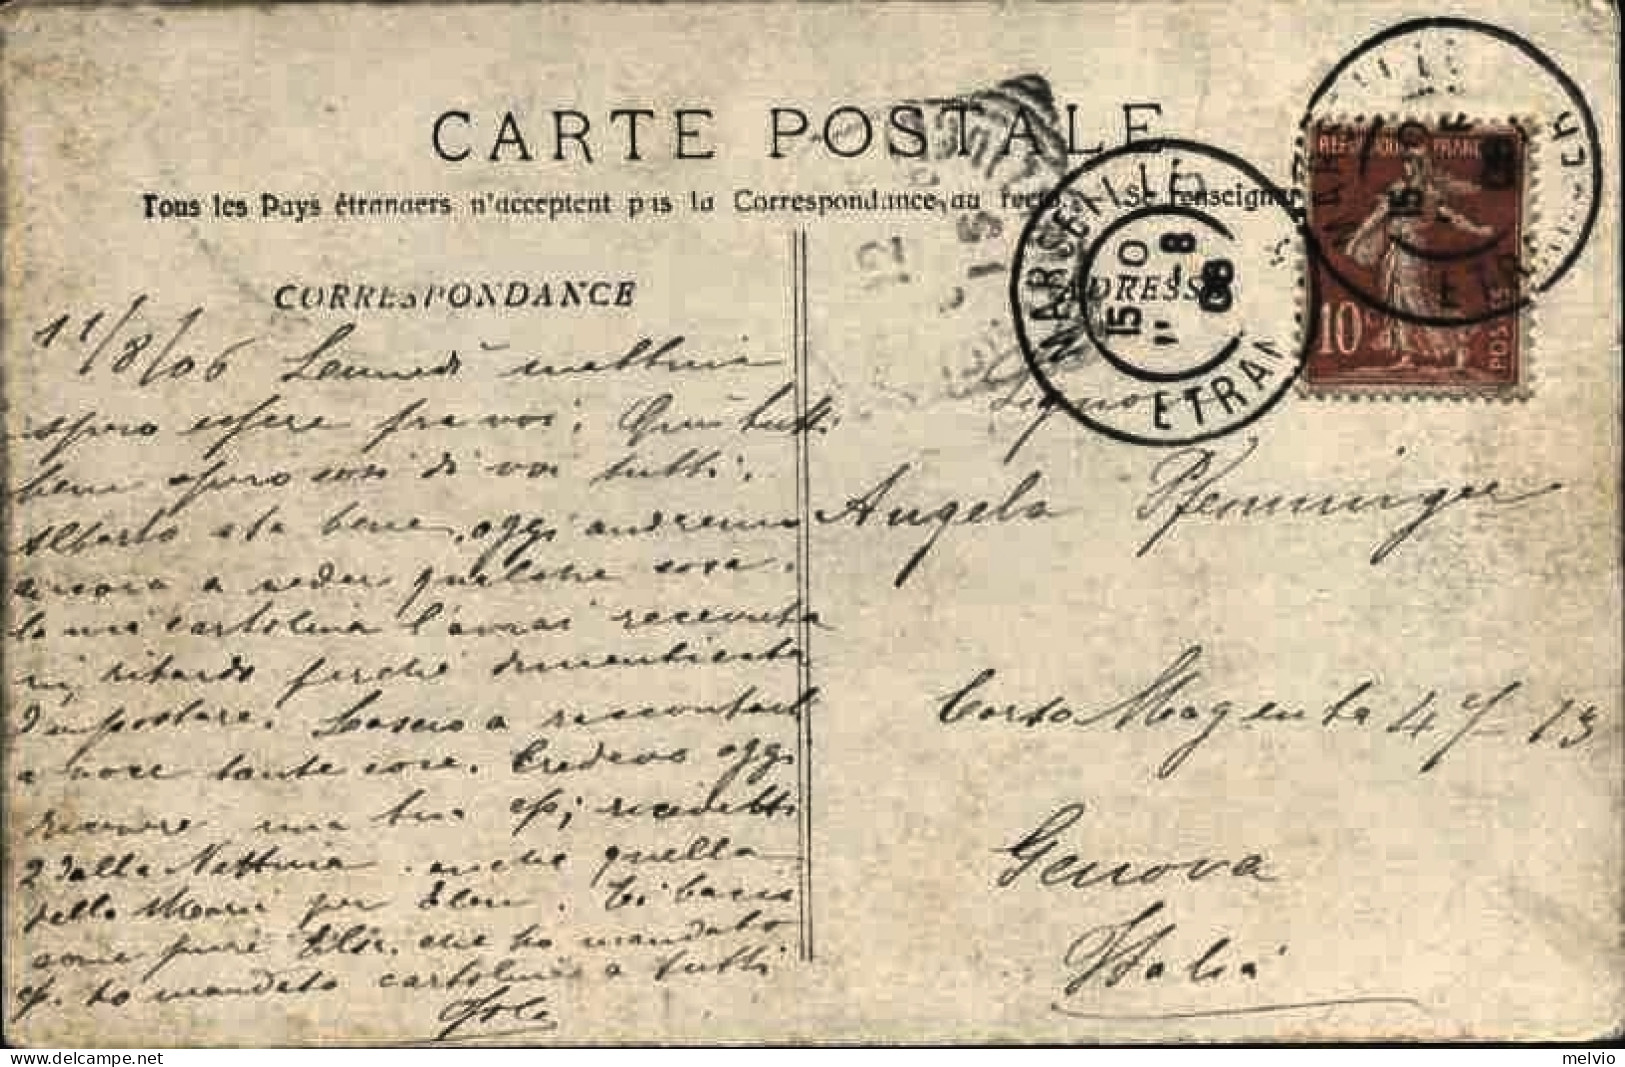 CARTE POSTALE
Tous les Pays étrangers n'acceptent pas la Correspondance au recto. — Se renseigner
CORRESPONDANCE
ADRESSE
MARSEILLE
15 10
11 - 8
06
ETRAN
REPUBLIQUE FRANCAISE
10
POSTES
11/8/06 Lunedì mattina
spero essere fra voi; Qui tutti
bene spero così di voi tutti.
Alberto sta bene, oggi andremo
ancora a veder qualche cosa.
La mia cartolina l'avrai ricevuta
in ritardo perché dimenticata
d'impostare. Lascio a raccontarti
a voce tante cose. Credevo oggi
ricevere una tua cp; ricevetti
2 dalla Nettina anche quella
della Mari per Elen. Ti bacio
come pure che ho mandato
cp. ho mandato cartoline a tutti
Signora
Angela Pfenninger
Corso Magenta 47-13
Genova
Italia
melvio